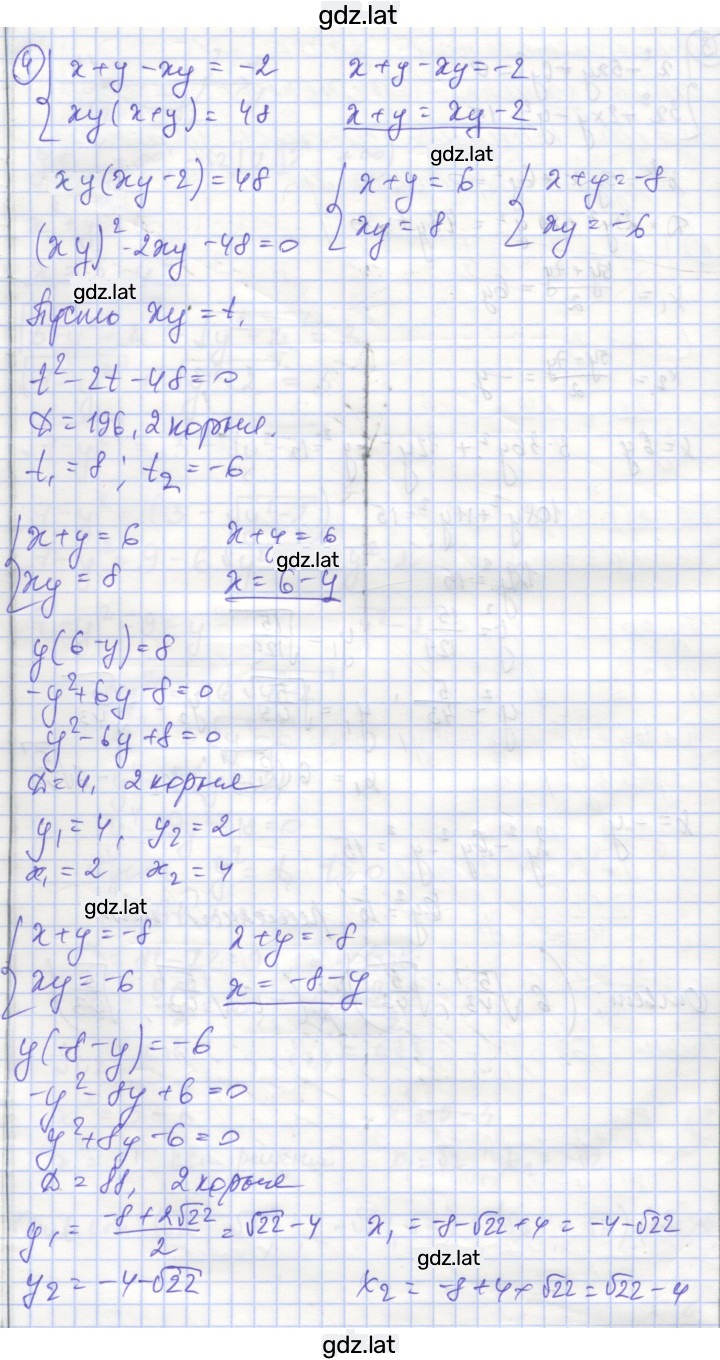 gdz.lat
④ { x+y-xy = -2 x+y-xy=-2
xy(x+y) = 48 x+y = xy-2
gdz.lat
xy(xy-2)=48 { x+y=6 { x+y=-8
(xy)²-2xy-48=0 xy=8 xy=-6
gdz.lat
Пусть xy=t,
t²-2t-48=0
D=196, 2 корня.
t₁=8; t₂=-6
{ x+y=6 x+y=6
gdz.lat
xy=8 x=6-y
y(6-y)=8
-y²+6y-8=0
y²-6y+8=0
D=4, 2 корня
y₁=4, y₂=2
x₁=2 x₂=4
gdz.lat
{ x+y=-8 x+y=-8
xy=-6 x=-8-y
y(-8-y)=-6
-y²-8y+6=0
y²+8y-6=0
D=88, 2 корня
y₁ = (-8+2√22)/2 = √22-4 x₁ = -8-√22+4 = -4-√22
gdz.lat
y₂ = -4-√22 x₂ = -8+4+√22=√22-4
gdz.lat